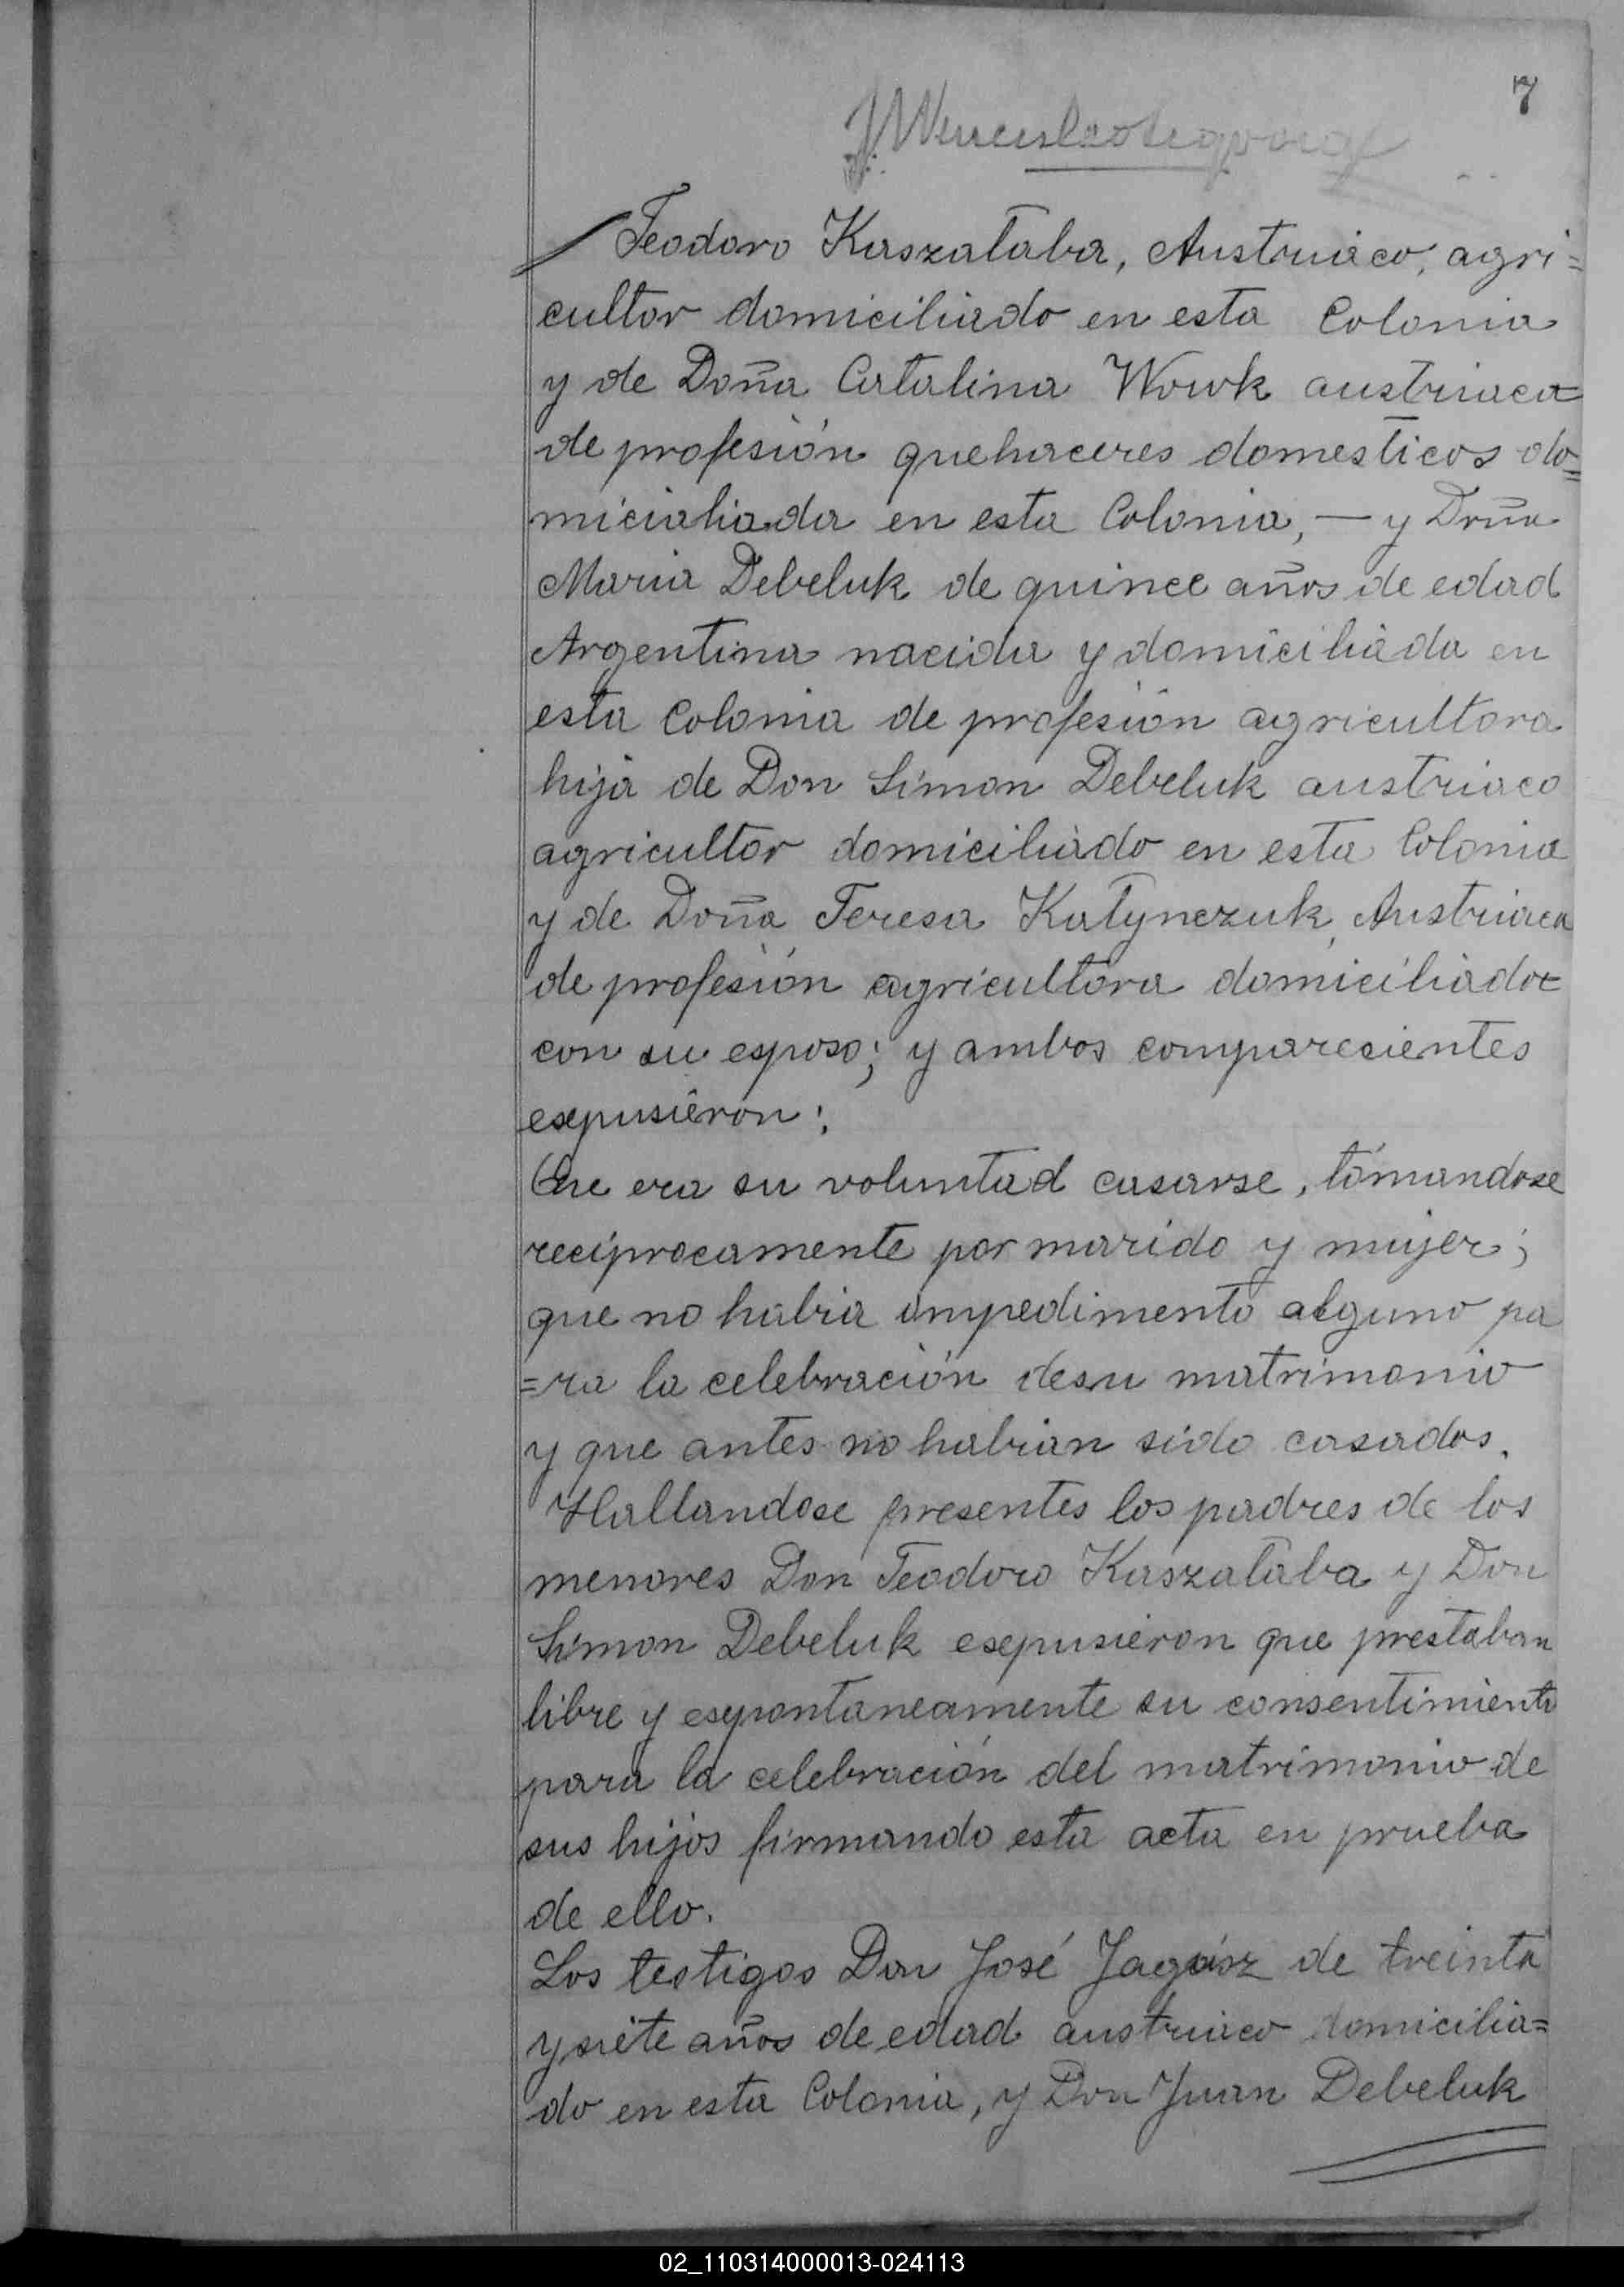 7
Teodoro Kaszataba, Austriaco, agri=
cultor domiciliado en esta Colonia
y de Doña Catalina Wowk austriaca
de profesión quehaceres domesticos do=
micialiada en esta Colonia, — y Doña
Maria Debeluk de quince años de edad
Argentina nacida y domiciliada en
esta Colonia de profesión agricultora
hija de Don Simon Debeluk austriaco
agricultor domiciliado en esta Colonia
y de Doña Teresa Katynczuk, Austriaca
de profesión agricultora domiciliada
con su esposo; y ambos comparesientes
expusieron:
Que era su voluntad casarse, tómandose
reciprocamente por marido y mujer;
que no habia impedimento alguno pa
=ra la celebración de su matrimonio
y que antes no habian sido casados.
Hallandose presentes los padres de los
menores Don Teodoro Kaszataba y Don
Simon Debeluk expusieron que prestaban
libre y espontaneamente su consentimiento
para la celebración del matrimonio de
sus hijos firmando esta acta en prueba
de ello.
Los testigos Don José Jagász de treinta
y siete años de edad austriaco domicilia=
do en esta Colonia, y Don Juan Debeluk
02_110314000013-024113